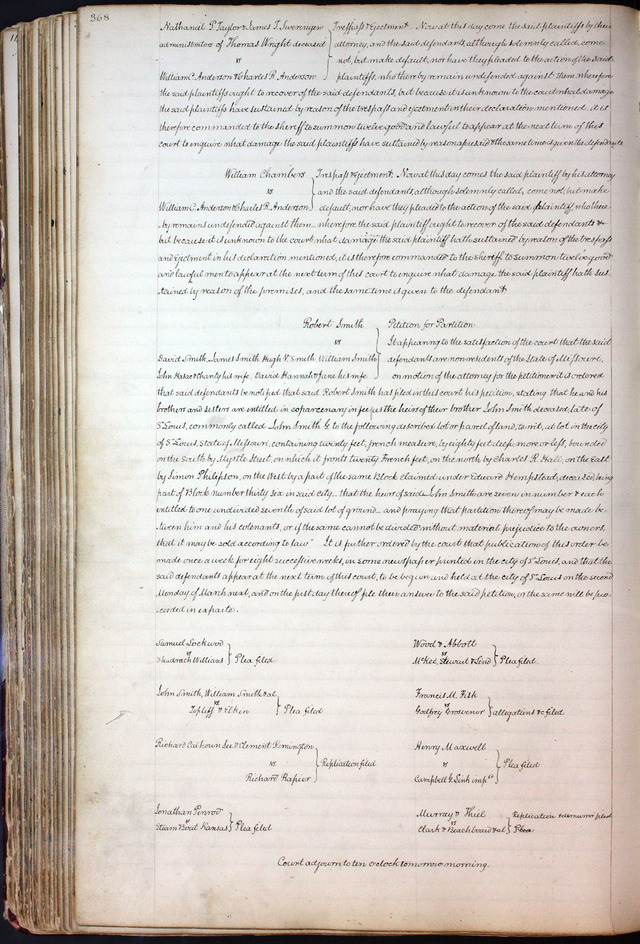 368
Nathaniel P. Taylor & James T. Swearingen } Trespass & Ejectment. Now at this day come the said plaintiffs by their
administrators of Thomas Wright deceased } attorney, and the said defendants, although solemnly called, come
vs } not, but make default, nor have they pleaded to the action of the said
William C. Anderson & Charles R. Anderson } plaintiffs, who thereby remain undefended against them wherefore
the said plaintiffs ought to recover of the said defendants, but because it is unknown to the court what damage
the said plaintiffs have sustained by reason of the trespass and ejectment in their declaration mentioned, it is
therefore commanded to the sheriff to summon twelve good and lawful to appear at the next term of this
court to enquire what damage the said plaintiffs have sustained by reason aforesaid & the same time is given the defendants
William Chambers } Trespass & Ejectment. Now at this day comes the said plaintiff by his attorney
vs } and the said defendants, although solemnly called, come not, but make
William C. Anderson & Charles R. Anderson } default, nor have they pleaded to the action of the said plaintiff, who there
by remains undefended against them, wherefore the said plaintiff ought to recover of the said defendants &
but because it is unknown to the court what damage the said plaintiff hath sustained by reason of the trespass
and Ejectment in his declaration mentioned, it is therefore commanded to the sheriff to summon twelve good
and lawful men to appear at the next term of this court to enquire what damage the said plaintiff hath sus
tained by reason of the premises, and the same time is given to the defendant
Robert Smith } Petition for Partition
vs } It appearing to the satisfaction of the court that the said
David Smith, James Smith Hugh V. Smith William Smith } defendants are non-residents of the State of Missouri,
John Hase & Charity his wife, David Hannah & Jane his wife } on motion of the attorney for the petitioner it is ordered
that said defendants be notified that said Robert Smith has filed in this court his petition, stating that he and his
brothers and sisters are entitled in coparcenary in fee as the heirs of their brother John Smith deceased, late of
St Louis, commonly called John Smith G to the following described lot or parcel of land, to wit, a lot in the city
of St Louis, State of Missouri, containing twenty feet, french measure, by eighty feet deep, more or less, bounded
on the South by Myrtle Street, on which it fronts twenty French feet, on the north by Charles R. Hall, on the East
by Simon Philipson, on the West by a part of the same Block claimed under Edward Hempstead, deceased, being
part of Block number thirty six in said city – that the heirs of said John Smith are seven in number & each
entitled to one undivided seventh of said lot of ground – and praying that partition thereof may be made be-
tween him and his cotenants, or if the same cannot be divided without material prejudice to the owners,
that it may be sold according to law" It is further ordered by the court that publication of this order be
made once a week for eight successive weeks, in some newspaper printed in the city of St Louis, and that the
said defendants appear at the next term of this court, to be begun and held at the city of St Louis on the second
Monday of March next, and on the first day thereof file their answer to the said petition, or the same will be pro
ceeded in exparte.
Samuel Lockwood
vs } Plea filed
Shadrach Williams
Wood & Abbott
vs } Plea filed.
McKee, Stewart & Lind
John Smith, William Smith & al
vs } Plea filed
Topliff & Elkin
Francis M. Fisk
vs } allegations &c filed
Godfrey Grosvenor
Richard Calhoun Lee & Clement Remington
vs } Replication filed
Richard Rapier
Henry Maxwell
vs } Plea filed
Campbell G. Sink imp.
Jonathan Penrod
vs } Plea filed
Steam Boat Kansas
Murray & Thiel } Replication & demurrer filed
vs
Clark & Beachboard & al } Plea
Court adjourn to ten o'clock tomorrow morning.